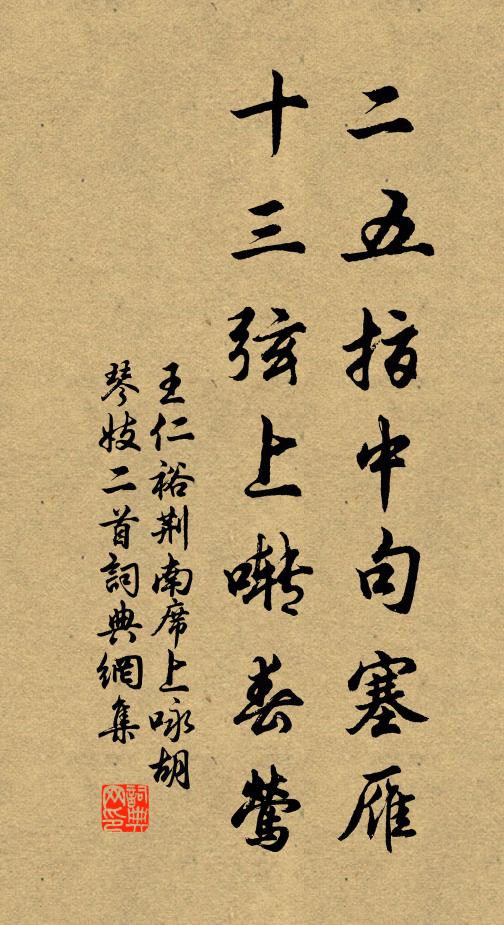 二五指中句塞雁
十三弦上囀春鶯
王仁裕荆南席上咏胡
琴妓二首詞典網集
詞典
网印